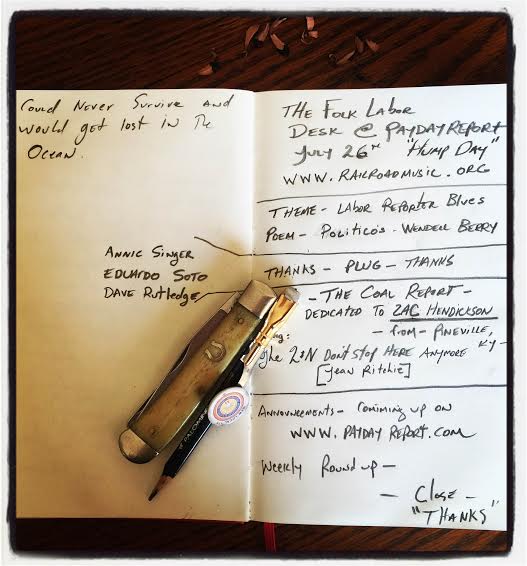 Could Never Survive and
would get lost in The
Ocean.
Annie Singer
Eduardo Soto
Dave Rutledge
The Folk Labor
Desk @ PaydayReport
July 26th "Hump Day"
www.RailroadMusic.org
Theme - Labor Reporter Blues
Poem - Politico's - Wendell Berry
Thanks - Plug - Thanks
- The Coal Report -
Dedicated to Zac Hendickson
- from - Pineville, Ky -
The L&N Don't Stop Here Anymore
[Jean Ritchie]
Announcements - comiming up on
www.PaydayReport.com
Weekly Round up -
- Close -
"Thanks"
PALOMINO